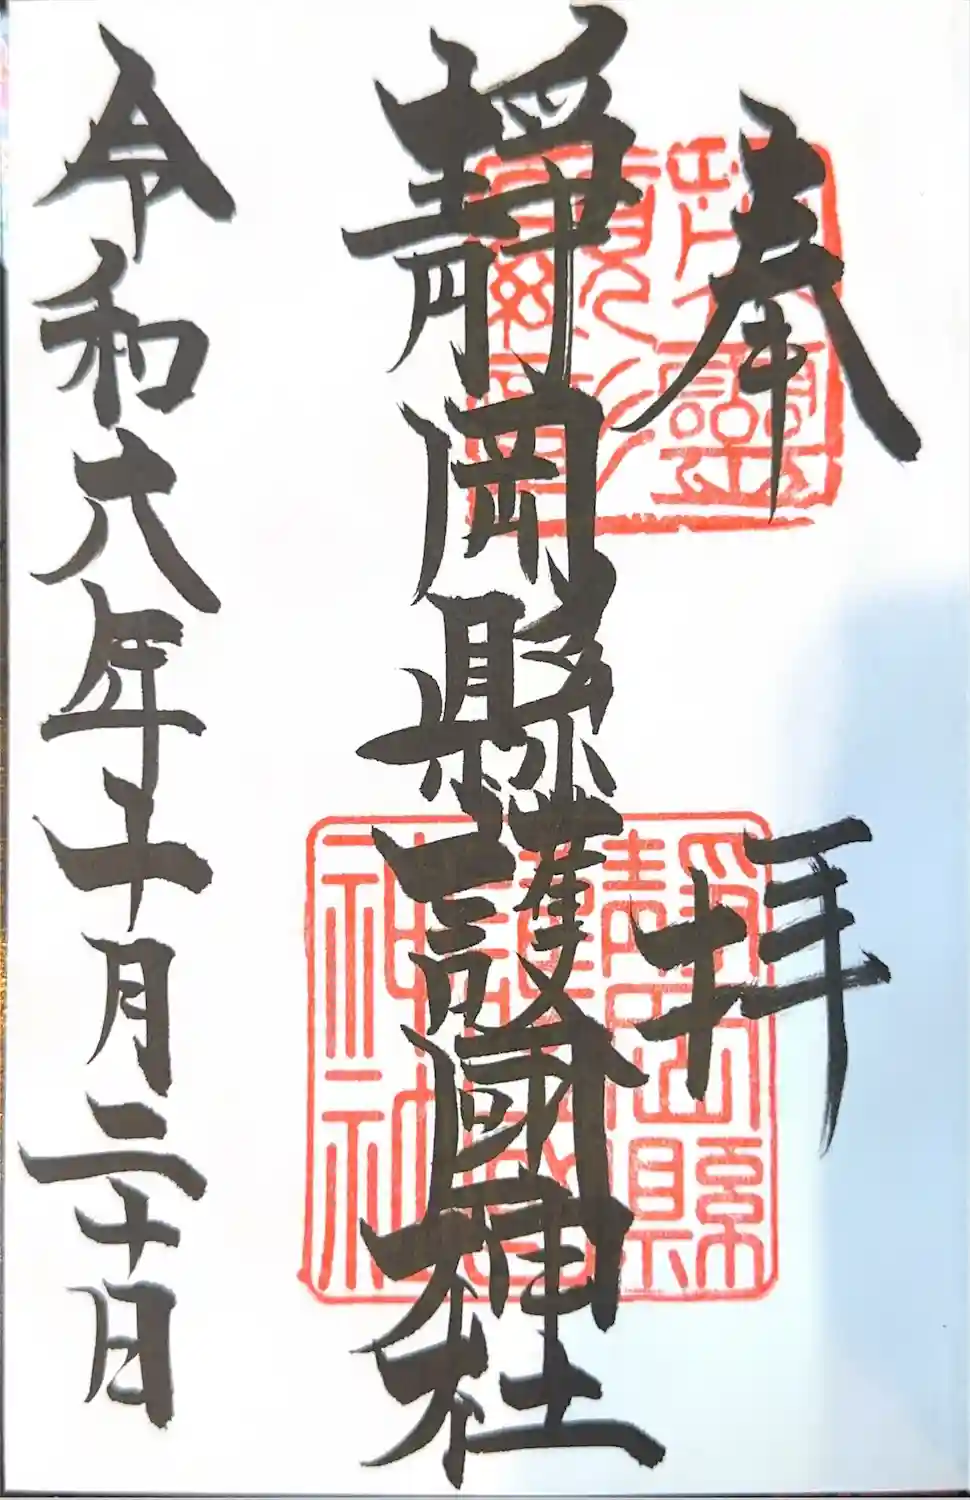 奉拝
靜岡縣護國神社
令和六年十月二十日
靜岡縣護國神社